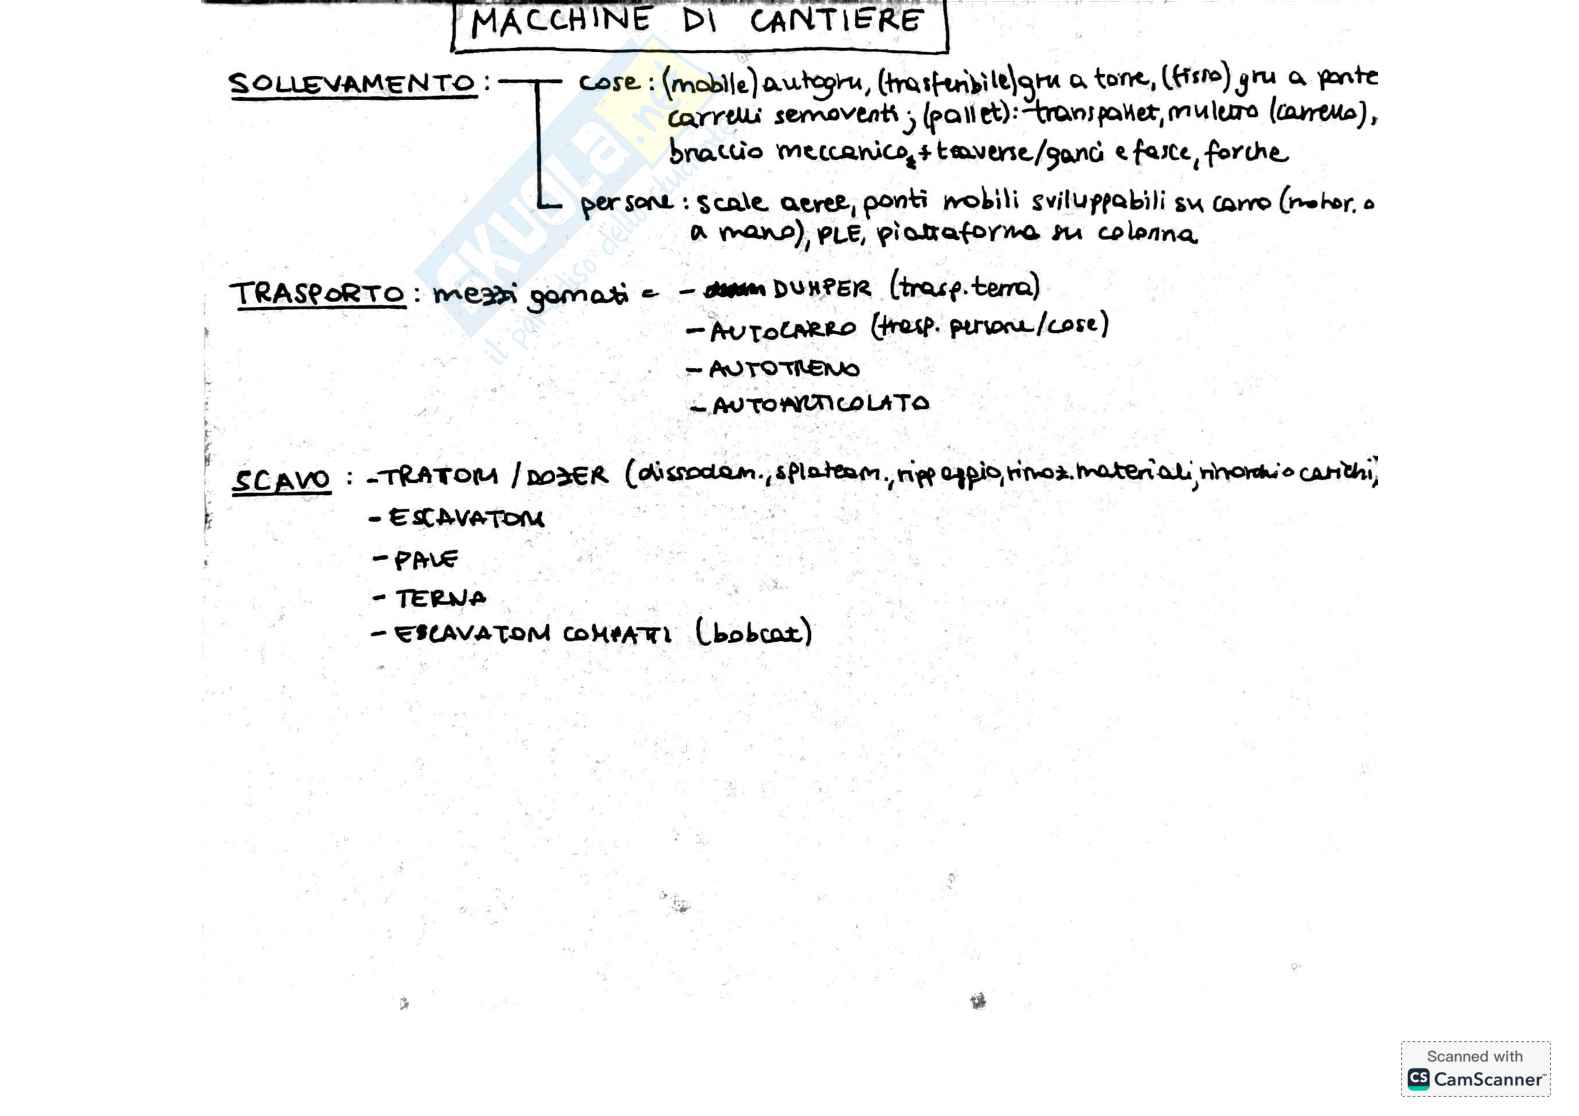 MACCHINE DI CANTIERE
SOLLEVAMENTO : cose : (mobile) autogru, (trasferibile) gru a torre, (fisso) gru a ponte
carrelli semoventi ; (pallet): transpallet, muletto (carrello),
braccio meccanico, + traverse/ganci e fasce, forche
persone : scale aeree, ponti mobili sviluppabili su carro (motor. o
a mano), PLE, piattaforma su colonna
TRASPORTO : mezzi gomati = - DUMPER (trasp. terra)
- AUTOCARRO (trasp. persone/cose)
- AUTOTRENO
- AUTOARTICOLATO
SCAVO : - TRATORI / DOZER (dissodam., splateam., rippaggio, rimoz. materiali, rimorchio carichi)
- ESCAVATORI
- PALE
- TERNA
- ESCAVATORI COMPATTI (bobcat)
SKUOLA.net
il paradiso dello studente
Scanned with
CS CamScanner